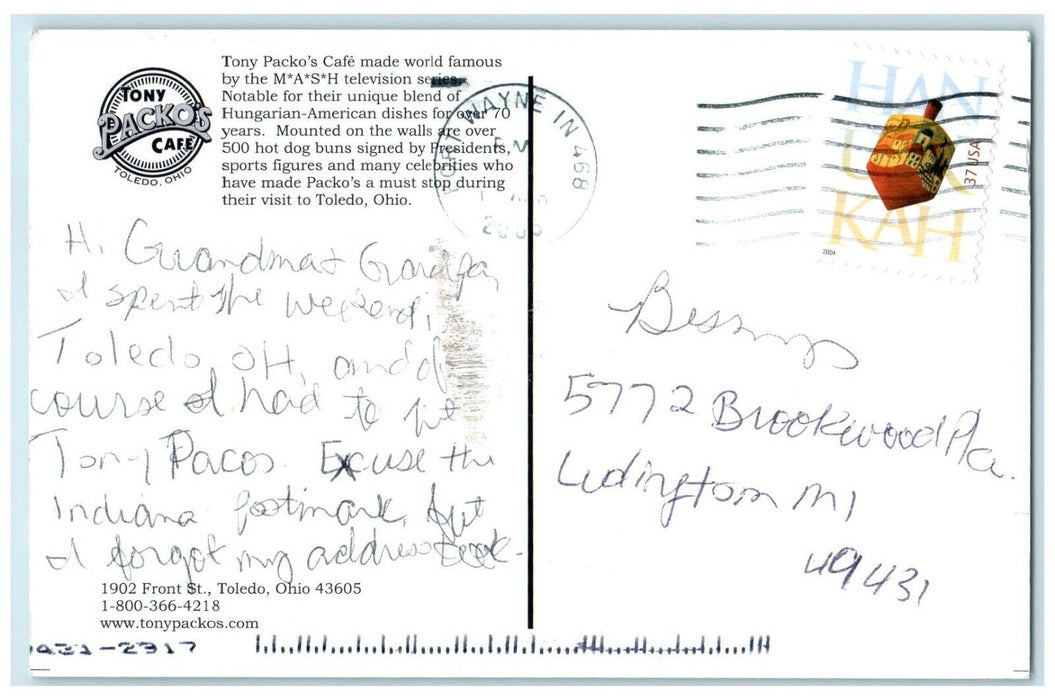 TONY
PACKO'S
CAFÉ
TOLEDO, OHIO
Tony Packo's Café made world famous
by the M*A*S*H television series.
Notable for their unique blend of
Hungarian-American dishes for over 70
years. Mounted on the walls are over
500 hot dog buns signed by Presidents,
sports figures and many celebrities who
have made Packo's a must stop during
their visit to Toledo, Ohio.
FORT WAYNE IN 468
PM
HAN
UK
KAH
37 USA
2004
Hi Grandma + Grandpa,
I spent the weekend,
Toledo, OH, and of
course I had to
Tony Pacos. Excuse the
Indiana postmark, but
I forgot my address book.
1902 Front St., Toledo, Ohio 43605
1-800-366-4218
www.tonypackos.com
5772 Brookwood Pla.
Ludington MI
49431
9431-2317